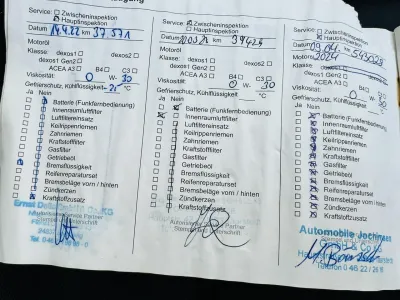 Service: Zwischeninspektion
Hauptinspektion
Datum 14.4.22 km 37.571
Motoröl
Klasse: dexos1 dexos2
dexos1 Gen2
ACEA A3 B4 C3
Viskosität: 0 W- 30
Gefrierschutz, Kühlflüssigkeit -25 °C
Ja Nein
Batterie (Funkfernbedienung)
Innenraumluftfilter
Luftfiltereinsatz
Keilrippenriemen
Zahnriemen
Kraftstofffilter
Gasfilter
Getriebeöl
Bremsflüssigkeit
Reifenreparaturset
Bremsbeläge vorn / hinten
Zündkerzen
Kraftstoffzusatz
Service: Zwischeninspektion
Hauptinspektion
Datum km 39425
Motoröl
Klasse: dexos1 dexos2
dexos1 Gen2
ACEA A3 B4 C3
Viskosität: 0 W- 30
Gefrierschutz, Kühlflüssigkeit °C
Ja Nein
Batterie (Funkfernbedienung)
Innenraumluftfilter
Luftfiltereinsatz
Keilrippenriemen
Zahnriemen
Kraftstofffilter
Gasfilter
Getriebeöl
Bremsflüssigkeit
Reifenreparaturset
Bremsbeläge vorn / hinten
Zündkerzen
Kraftstoffzusatz
Service: Zwischeninspektion
Hauptinspektion
Datum
Motoröl 2024
Klasse: dexos1 dexos2
dexos1 Gen2
ACEA A3 B4 C3
Viskosität: 0 W- 30
Gefrierschutz, Kühlflüssigkeit °C
Ja Nein
Batterie (Funkfernbedienung)
Innenraumluftfilter
Luftfiltereinsatz
Keilrippenriemen
Zahnriemen
Kraftstofffilter
Gasfilter
Getriebeöl
Bremsflüssigkeit
Reifenreparaturset
Bremsbeläge vorn / hinten
Zündkerzen
Kraftstoffzusatz
Automobile Jochimsen
Telefon 0 48 22 /